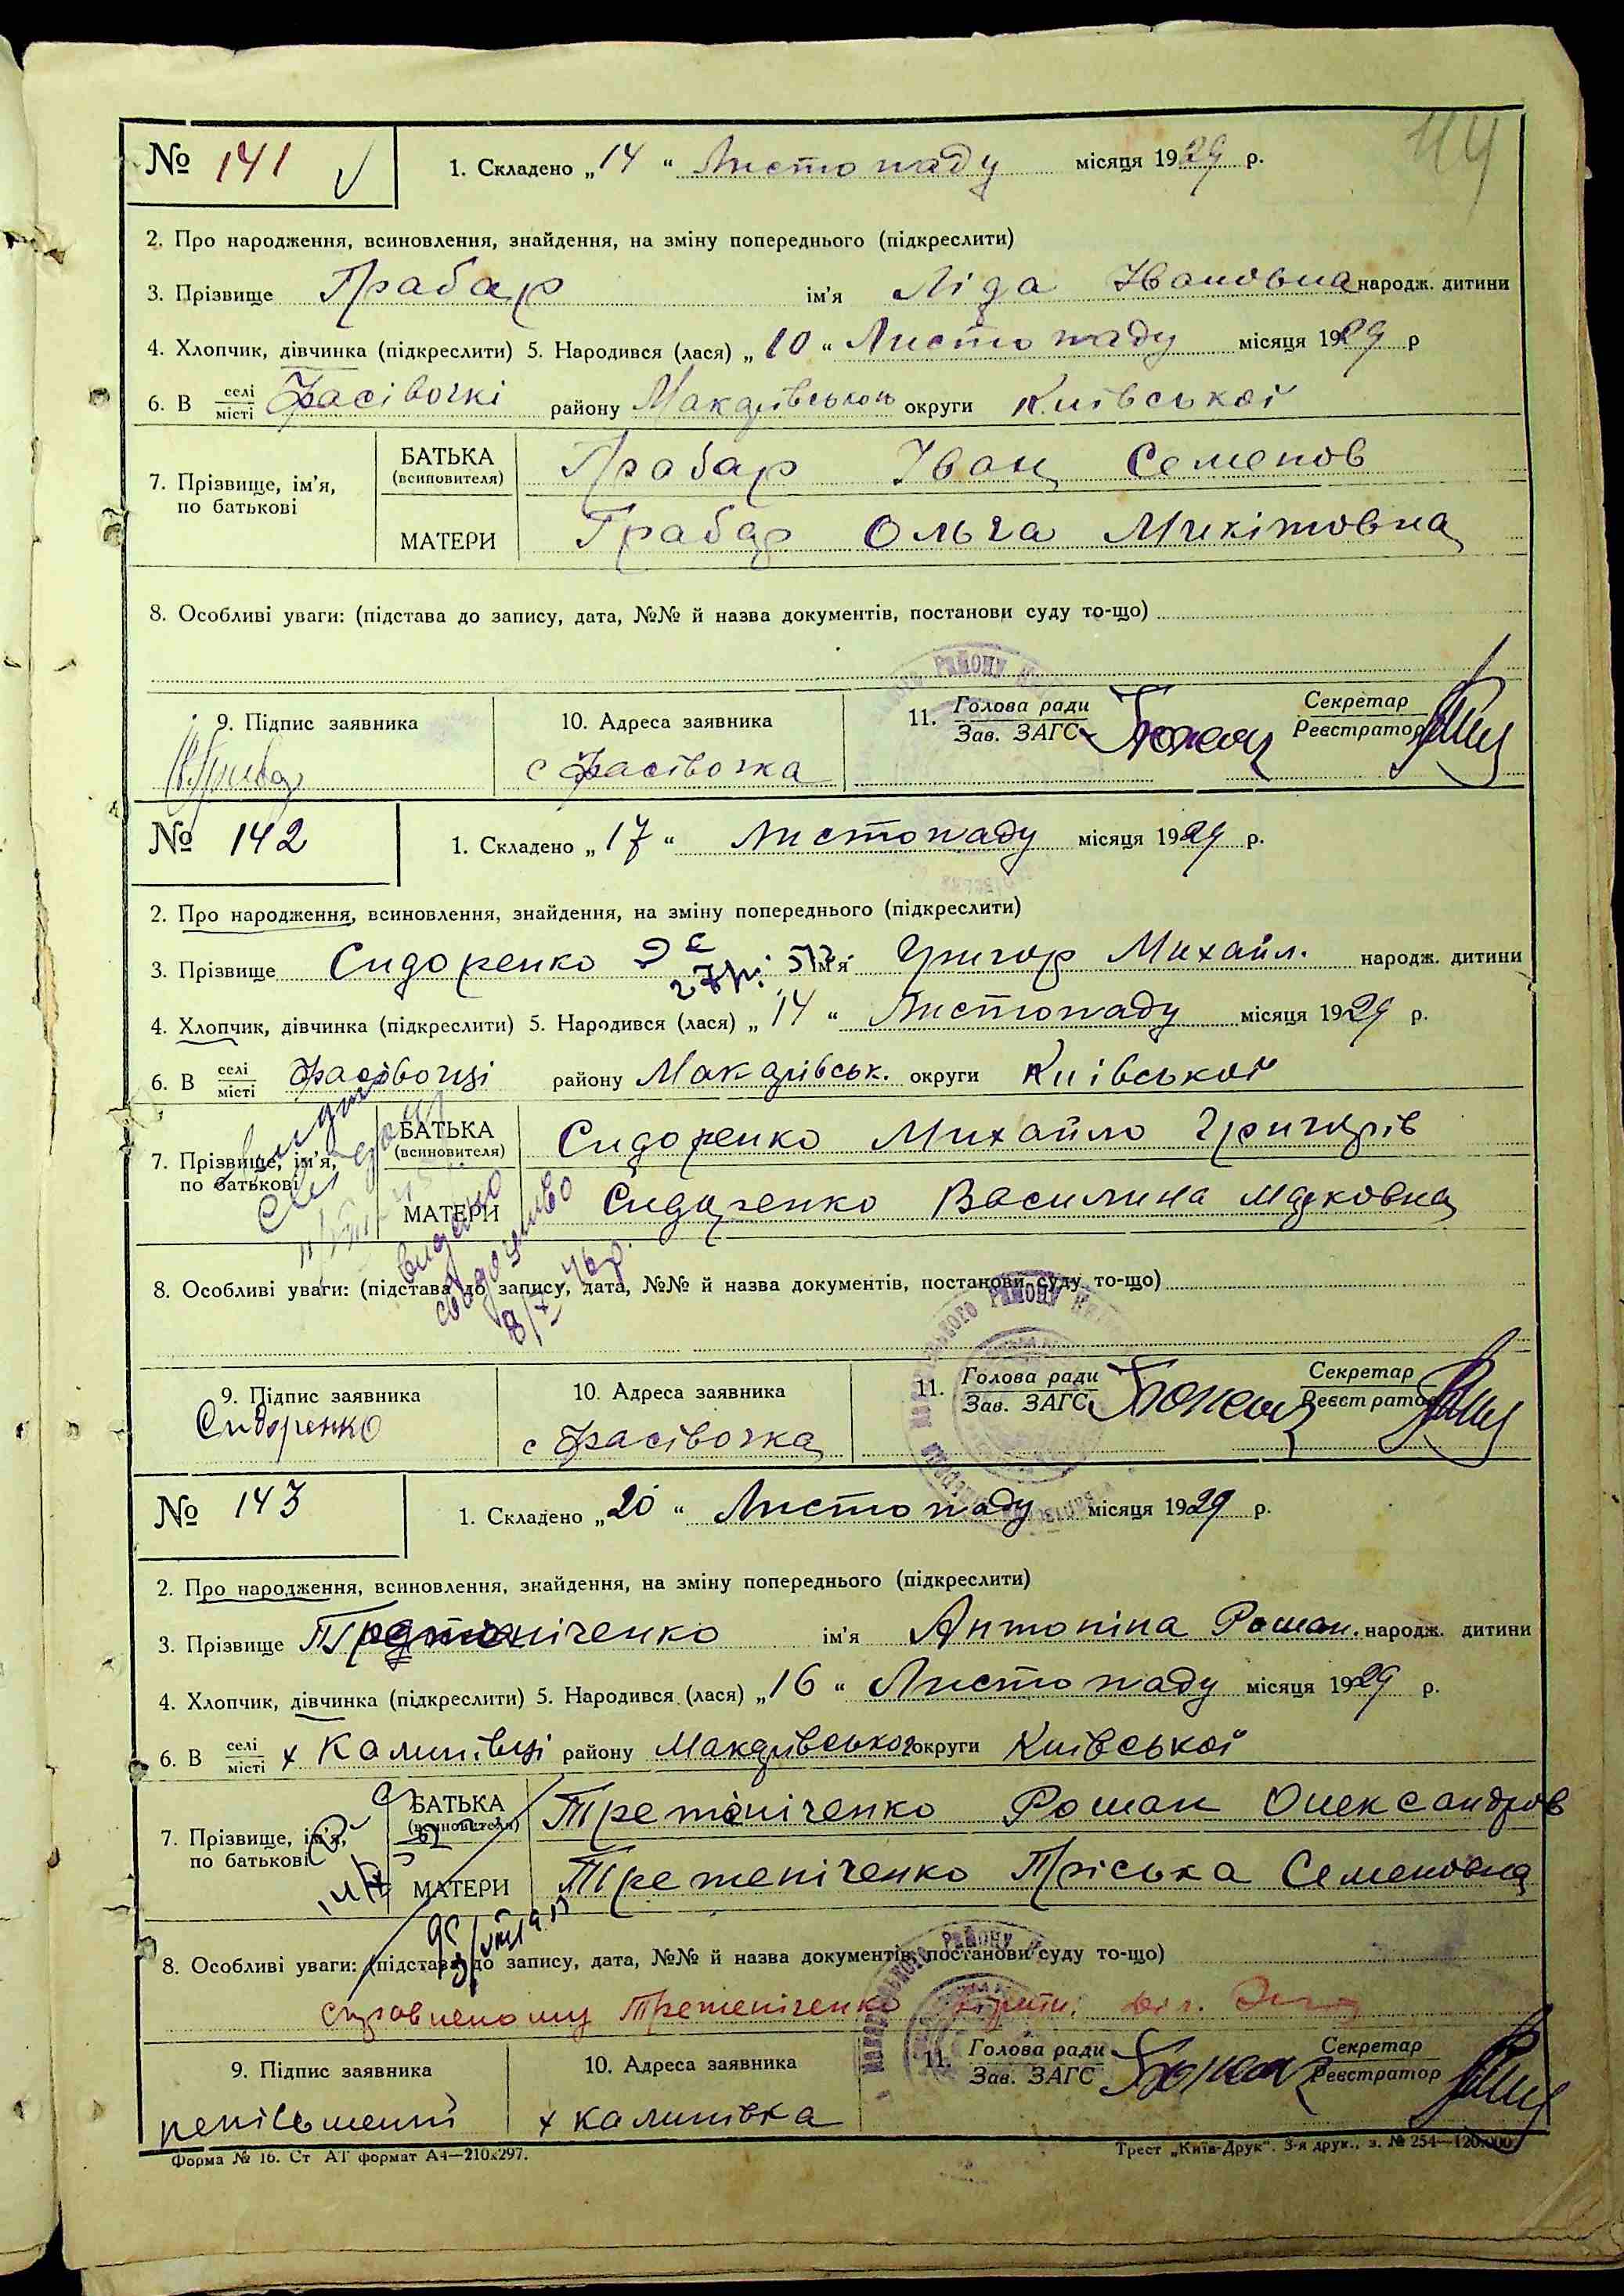 114
№ 141
1. Складено „14“ Листопаду місяця 1929 р.
2. Про народження, всиновлення, знайдення, на зміну попереднього (підкреслити)
3. Прізвище Грабар ім'я Ліда Івановна народж. дитини
4. Хлопчик, дівчинка (підкреслити) 5. Народився (лася) „10“ Листопаду місяця 1929 р
6. В селі місті Фасівочкі району Макарівського округи Київської
7. Прізвище, ім'я, по батькові
БАТЬКА (всиновителя) Грабар Іван Семенов
МАТЕРИ Грабар Ольга Микітовна
8. Особливі уваги: (підстава до запису, дата, №№ й назва документів, постанови суду то-що)
9. Підпис заявника
10. Адреса заявника с Фасівочка
11. Голова ради Зав. ЗАГС Секретар Реєстратор
№ 142
1. Складено „17“ Листопаду місяця 1929 р.
2. Про народження, всиновлення, знайдення, на зміну попереднього (підкреслити)
3. Прізвище Сидоренко ім'я Григор Михайл. народж. дитини
4. Хлопчик, дівчинка (підкреслити) 5. Народився (лася) „14“ Листопаду місяця 1929 р.
6. В селі місті Фасівочці району Макарівськ. округи Київської
7. Прізвище, ім'я, по батькові
БАТЬКА (всиновителя) Сидоренко Михайло Григорів
МАТЕРИ Сидоренко Василина Марковна
видано
свідоцтво
8. Особливі уваги: (підстава до запису, дата, №№ й назва документів, постанови суду то-що)
9. Підпис заявника Сидоренко
10. Адреса заявника с Фасівочка
11. Голова ради Зав. ЗАГС Секретар Реєстратор
№ 143
1. Складено „20“ Листопаду місяця 1929 р.
2. Про народження, всиновлення, знайдення, на зміну попереднього (підкреслити)
3. Прізвище ім'я Антоніна Роман. народж. дитини
4. Хлопчик, дівчинка (підкреслити) 5. Народився (лася) „16“ Листопаду місяця 1929 р.
6. В селі місті х Калинівці району Макарівського округи Київської
7. Прізвище, ім'я, по батькові
БАТЬКА (всиновителя) Третяніченко Роман Олександров
МАТЕРИ Третеніченко Пріська Семеновна
8. Особливі уваги: (підстава до запису, дата, №№ й назва документів, постанови суду то-що)
Третеніченко
9. Підпис заявника неписьменні
10. Адреса заявника х Калинівка
11. Голова ради Зав. ЗАГС Секретар Реєстратор
Форма № 16. Ст АТ формат А4—210х297.
Трест „Київ-Друк“. 3-я друк., з. № 254—120.000.